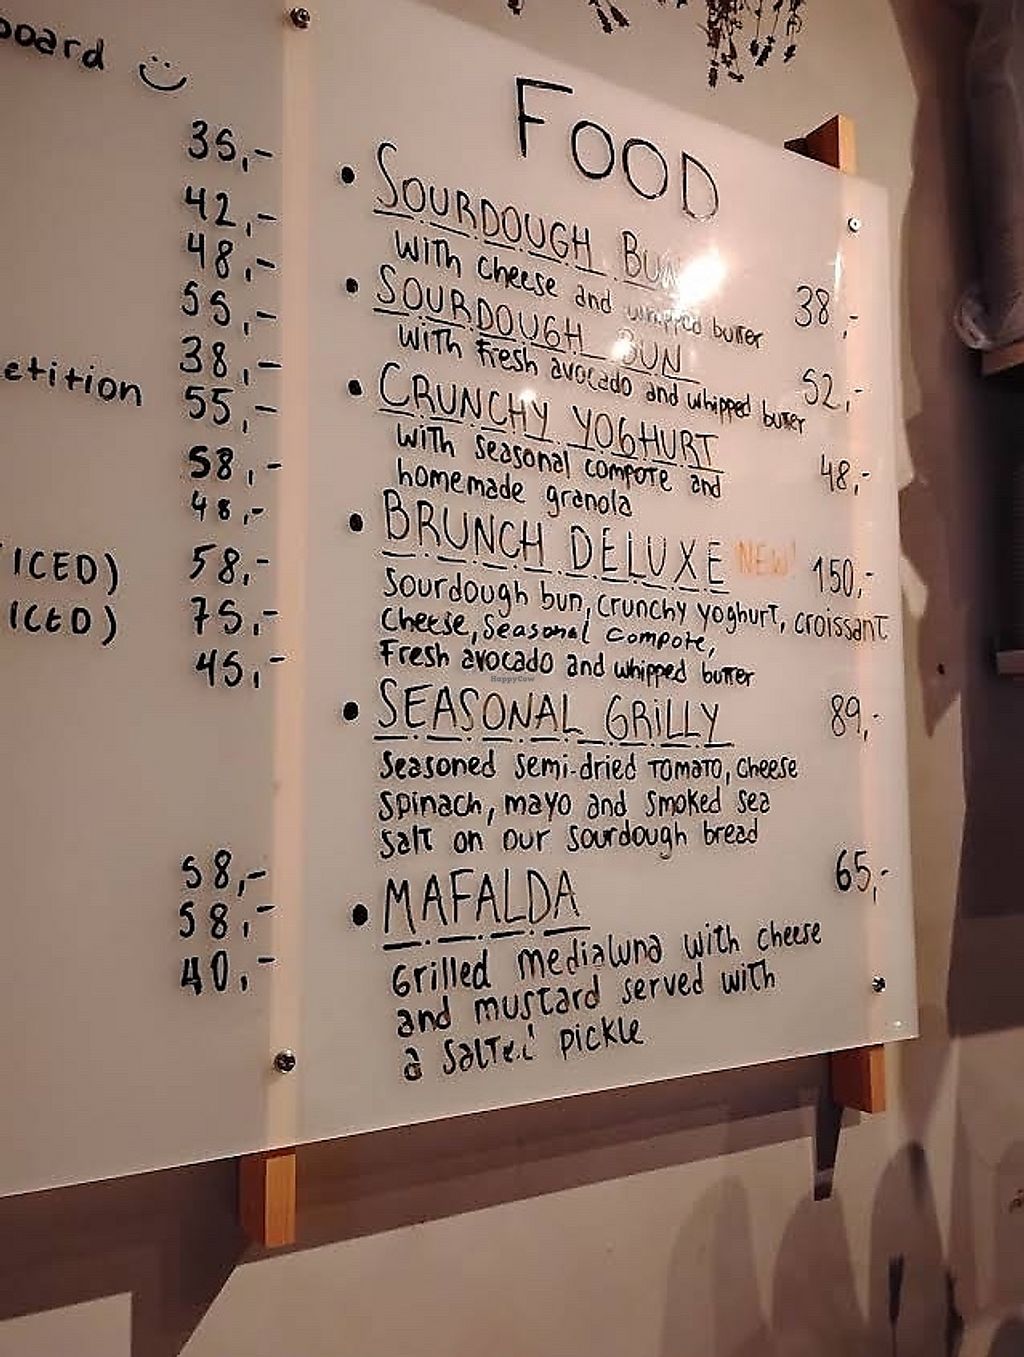 board
35,-
42,-
48,-
55,-
38,-
etition 55,-
58,-
48,-
ICED) 58,-
ICED) 75,-
45,-
58,-
58,-
40,-
FOOD
• SOURDOUGH BUN
with cheese and whipped butter 38,-
• SOURDOUGH BUN
with fresh avocado and whipped butter 52,-
• CRUNCHY YOGHURT
with seasonal compote and 48,-
homemade granola
• BRUNCH DELUXE NEW! 150,-
Sourdough bun, crunchy yoghurt, croissant
Cheese, Seasonal compote,
Fresh avocado and whipped butter
HappyCow
• SEASONAL GRILLY 89,-
Seasoned semi-dried tomato, cheese
spinach, mayo and smoked sea
salt on our sourdough bread
• MAFALDA 65,-
Grilled medialuna with cheese
and mustard served with
a salted pickle